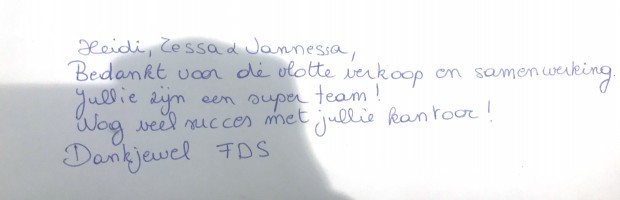 Heidi, Zessa & Vannessa,
Bedankt voor de vlotte verkoop en samenwerking.
Jullie zijn een super team!
Nog veel succes met jullie kantoor!
Dankjewel FDS